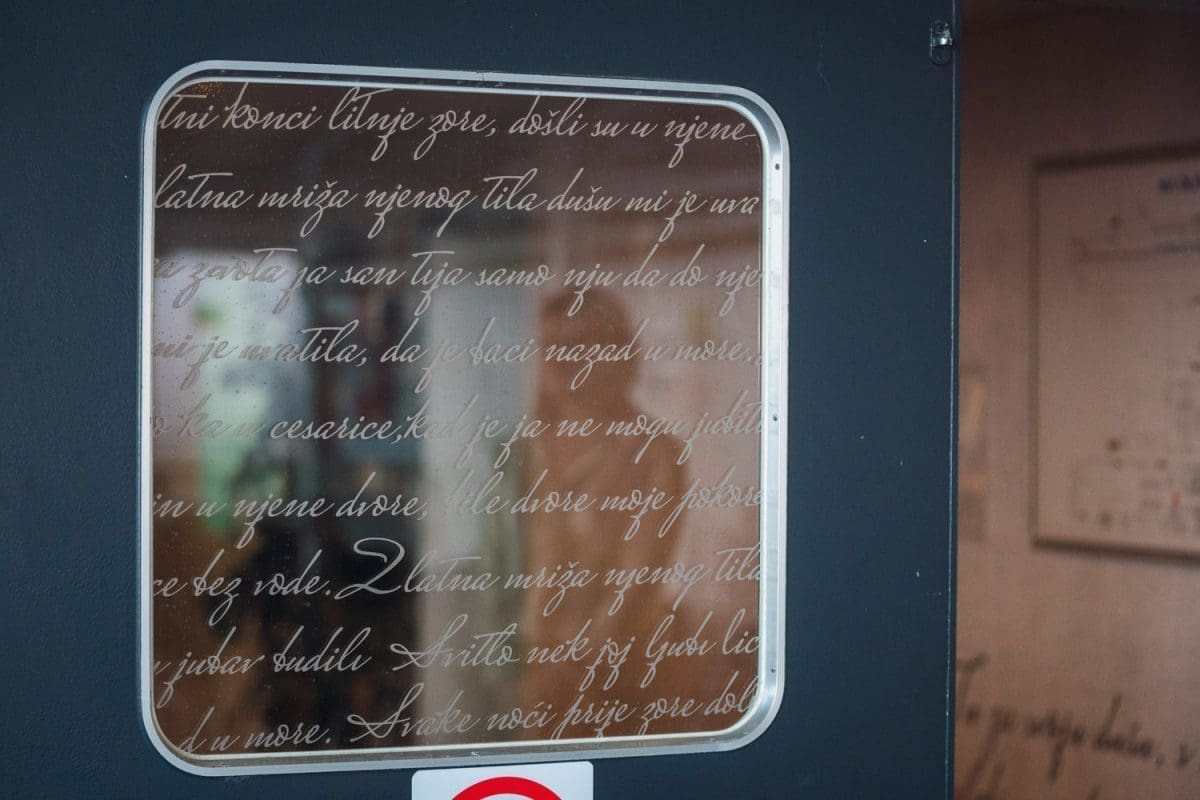 tni konci litnje zore, došli su u njene
latna mriža njenog tila dušu mi je uva
za života ja san tija samo nju da do nje
mi je uvatila, da je baci nazad u more..
o ka u cesarice, kad je ja ne mogu jubiti
in u njene dvore, bile dvore moje pokore
ce bez vode. Zlatna mriža njenog tila
u jubav budili Svitlo nek joj ljubi lic
d u more. Svake noći prije zore dol